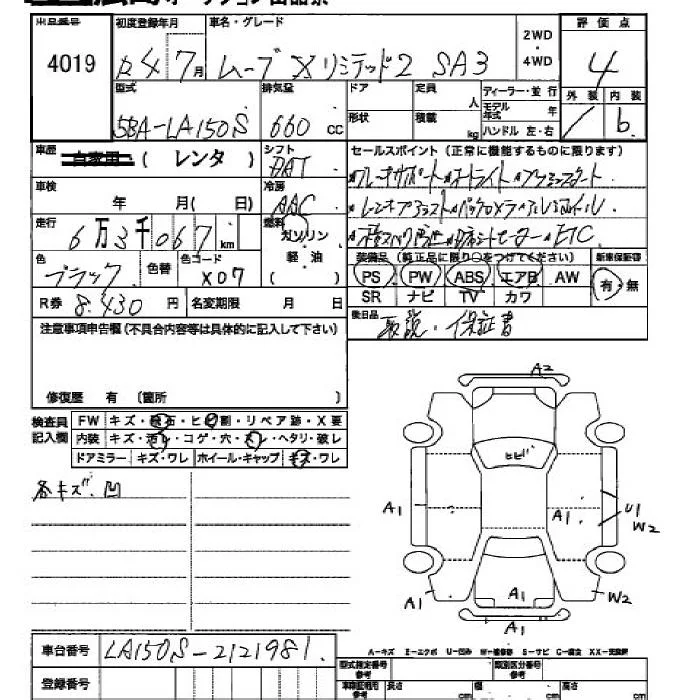 出品番号 4019
初度登録年月 4 7月
車名・グレード ムーブ Xリミテッド2 SA3
2WD・4WD
評価点 4
外装 内装 b
型式 5BA-LA150S
排気量 660 cc
ドア 定員 人
形状 積載 kg
ディーラー・並行
モデル年式 年
ハンドル 左・右
車歴 自家用 ( レンタ )
シフト
車検 年 月( 日)
冷房 AAC
走行 6万3千067 km
燃料 ガソリン
軽・油
( )
色 ブラック 色替 色コード X07
R券 8,430 円 名変期限 月 日
セールスポイント(正常に機能するものに限ります)
ETC
装備品(純正品に限り○をつけてください) 新車保証書
PS PW ABS エアB AW 有・無
SR ナビ TV カワ
後日品 取説・保証書
注意事項申告欄(不具合内容等は具体的に記入して下さい)
修復歴 有 〔箇所 〕
検査員記入欄
FW キズ・飛石・ヒビ割・リペア跡・X要
内装 キズ・汚レ・コゲ・穴・スレ・ヘタリ・破レ
ドアミラー キズ・ワレ ホイール・キャップ キズ・ワレ
各キズ、凹
A2
ヒビ
A1
A1
U1
W2
A1
A1
W2
車台番号 LA150S-2121981
登録番号
A-キズ E-エクボ U-凹み W-補修跡 S-サビ C-腐食 XX-交換済
型式指定番号 参考
類別区分番号 参考
参考 長さ cm 幅 cm 高さ cm